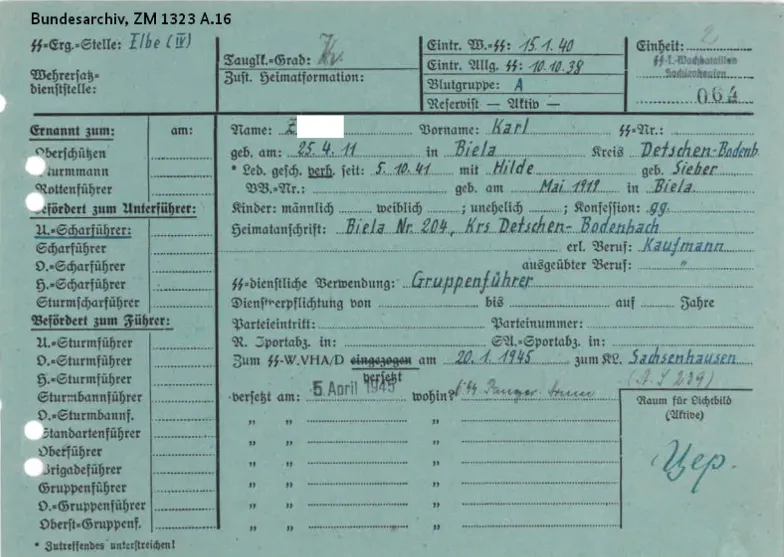 Bundesarchiv, ZM 1323 A.16
SS-Erg.-Stelle: Elbe (IV)
Wehrersatz-
dienststelle:
Tauglk.-Grad: Kv.
Zust. Heimatformation:
Eintr. W.-SS: 15.1.40
Eintr. Allg. SS: 10.10.38
Blutgruppe: A
Reservist — Aktiv —
Einheit: 2
SS-T.-Wachbataillon
Sachsenhausen
064
Ernannt zum: am:
Oberschützen
Sturmmann
Rottenführer
Befördert zum Unterführer:
U.-Scharführer:
Scharführer
O.-Scharführer
H.-Scharführer
Sturmscharführer
Befördert zum Führer:
U.-Sturmführer
O.-Sturmführer
H.-Sturmführer
Sturmbannführer
O.-Sturmbannf.
Standartenführer
Oberführer
Brigadeführer
Gruppenführer
O.-Gruppenführer
Oberst-Gruppenf.
* Zutreffendes unterstreichen!
Name: Z Vorname: Karl SS-Nr.:
geb. am: 25.4.11 in Biela Kreis Detschen-Bodenb.
* Led. gesch. verh. seit: 5.10.41 mit Hilde geb. Sieber
VB.-Nr.: geb. am Mai 1919 in Biela
Kinder: männlich weiblich ; unehelich ; Konfession: gg.
Heimatanschrift: Biela Nr. 204, Krs Detschen-Bodenbach
erl. Beruf: Kaufmann
ausgeübter Beruf: "
SS-dienstliche Verwendung: Gruppenführer
Dienstverpflichtung von bis auf Jahre
Parteieintritt: Parteinummer:
R. Sportabz. in: SA.-Sportabz. in:
Zum SS-W.VHA/D eingezogen am 20.1.1945 zum KL. Sachsenhausen
versetzt
versetzt am: 5. April 1945 wohin?
(A.S 239)
" " "
" " "
" " "
" " "
" " "
" " "
Raum für Lichtbild
(Aktive)